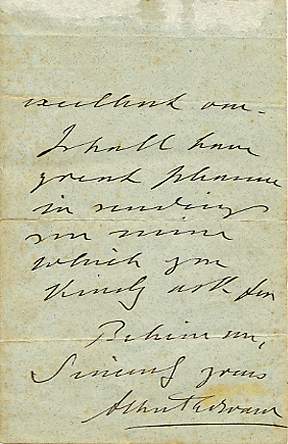 excellent one.
I shall have
great pleasure
in sending
you mine
which you
kindly ask for
Believe me,
Sincerely yours